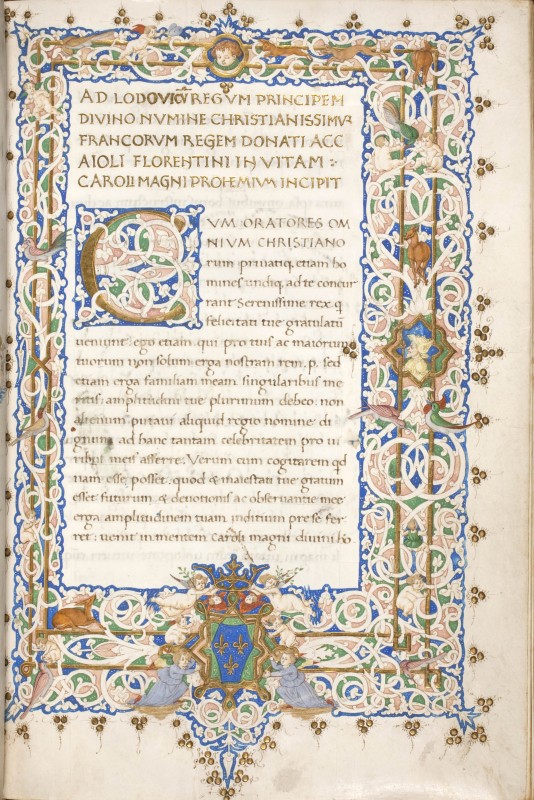 AD LODOVICŨ REGUM PRINCIPEM
DIVINO NUMINE CHRISTIANISSIMŨ
FRANCORUM REGEM DONATI ACC
AIOLI FLORENTINI IN VITAM :
CAROLI MAGNI PROHEMIUM INCIPIT
CUM ORATORES OM
NIUM CHRISTIANO
rum priuatiq; etiam ho
mines undiq; ad te concur
rant Serenissime rex: q
felicitati tue gratulatũ
ueniunt: ego etiam qui pro tuis ac maiorum
tuorum non solum erga nostram rem. p. sed
etiam erga familiam meam singularibus me
ritis: amplitudini tue plurimum debeo: non
alienum putaui aliquid regio nomine di
gnum ad hanc tantam celebritatem pro ui
ribus meis afferre. Verum cum cogitarem qd
nam esse posset: quod & maiestati tue gratum
esset futurum & deuotionis ac obseruantie mee
erga amplitudinem tuam inditium pre se fer
ret: uenit in mentem Caroli magni diuini ho